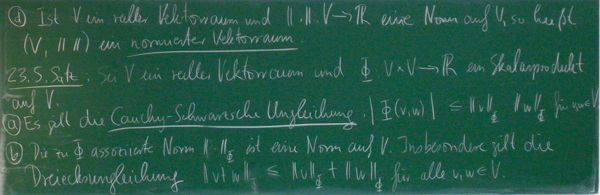 (d) Ist V ein reeller Vektorraum und ‖·‖: V → ℝ eine Norm auf V, so heißt
(V, ‖ ‖) ein normierter Vektorraum
23.5. Satz: Sei V ein reeller Vektorraum und Φ: V×V → ℝ ein Skalarprodukt
auf V.
(a) Es gilt die Cauchy-Schwarzsche Ungleichung. |Φ(v,w)| ≤ ‖v‖_Φ ‖w‖_Φ für v,w∈V.
(b) Die zu Φ assoziierte Norm ‖·‖_Φ ist eine Norm auf V. Insbesondere gilt die
Dreiecksungleichung ‖v+w‖_Φ ≤ ‖v‖_Φ + ‖w‖_Φ für alle v,w∈V.